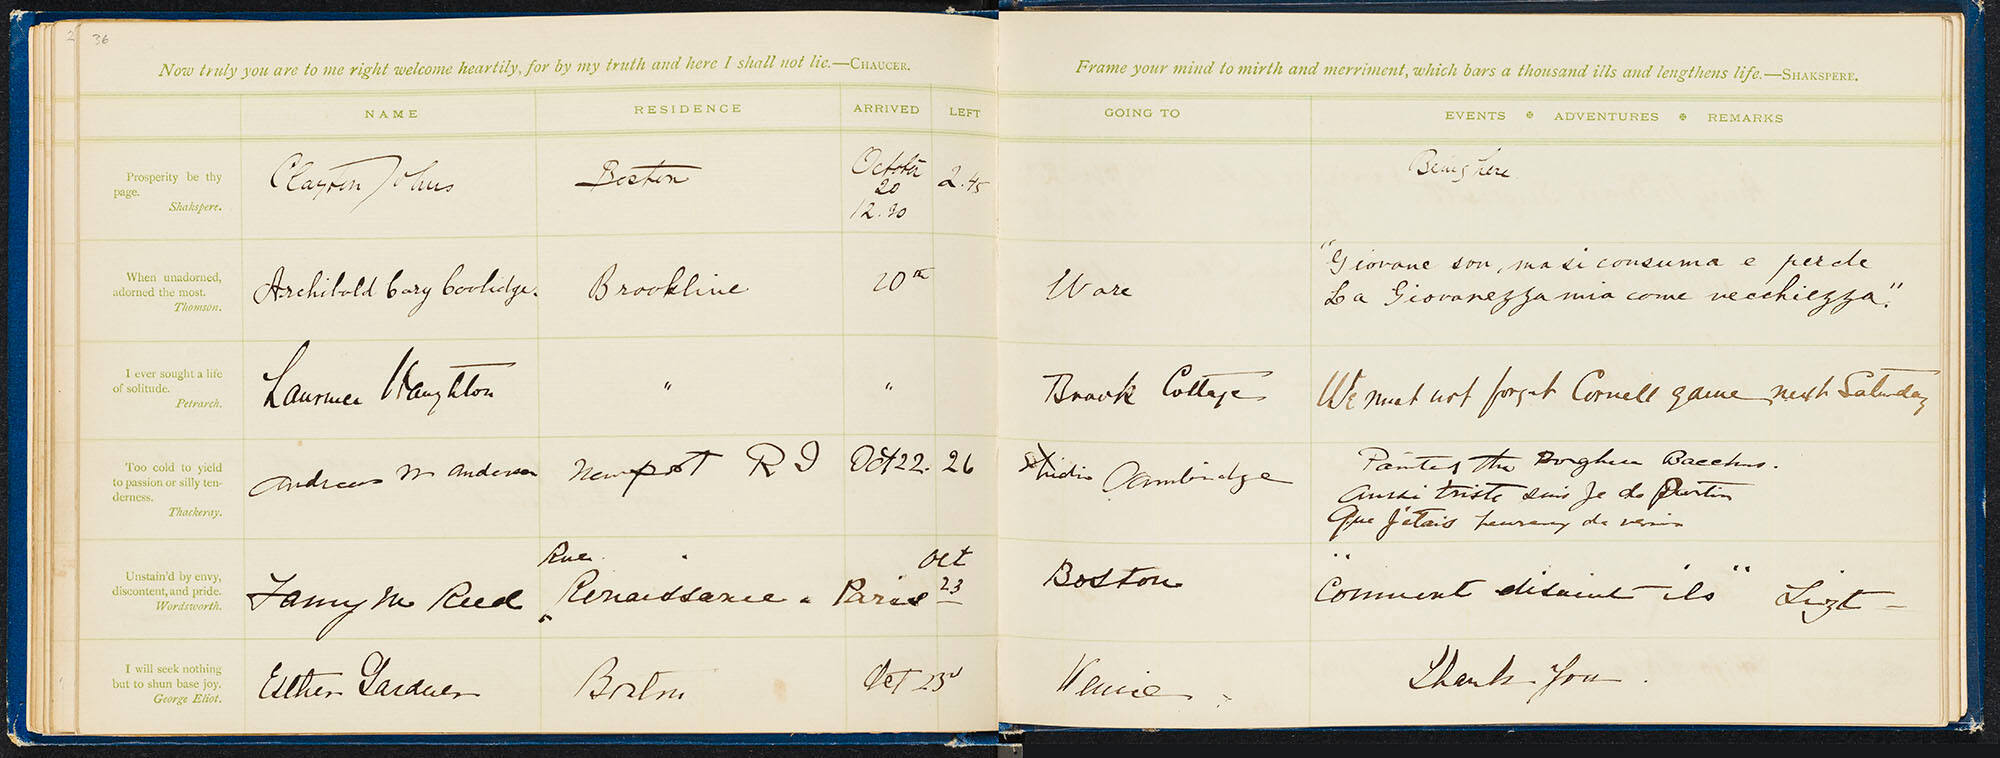 2 36
Now truly you are to me right welcome heartily, for by my truth and here I shall not lie.—CHAUCER.
NAME RESIDENCE ARRIVED LEFT
Prosperity be thy
page.
Shakspere.
Clayton Johns Boston October
20
12.30 2.45
When unadorned,
adorned the most.
Thomson.
Archibald Cary Coolidge. Brookline 20th
I ever sought a life
of solitude.
Petrarch.
" "
Too cold to yield
to passion or silly ten-
derness.
Thackeray.
Andreas M Andersen Newport R I Oct 22. 26
Unstain'd by envy,
discontent, and pride.
Wordsworth.
Fanny M Reed Rue
Renaissance - Paris Oct
23
I will seek nothing
but to shun base joy.
George Eliot.
Esther Gardner Boston Oct 23d
Frame your mind to mirth and merriment, which bars a thousand ills and lengthens life.—SHAKSPERE.
GOING TO EVENTS ✠ ADVENTURES ✠ REMARKS
Being here
Ware "Giovane son, ma si consuma e perde
La Giovanezza mia come vecchiezza."
Brook Cottage We must not forget Cornell game next Saturday
Studio Cambridge Painted the Borghese Bacchus.
Aussi triste suis je de partir
Que j'étais heureux de venir
Boston "Comment disaient-ils" Liszt —
Venice. Thank you.